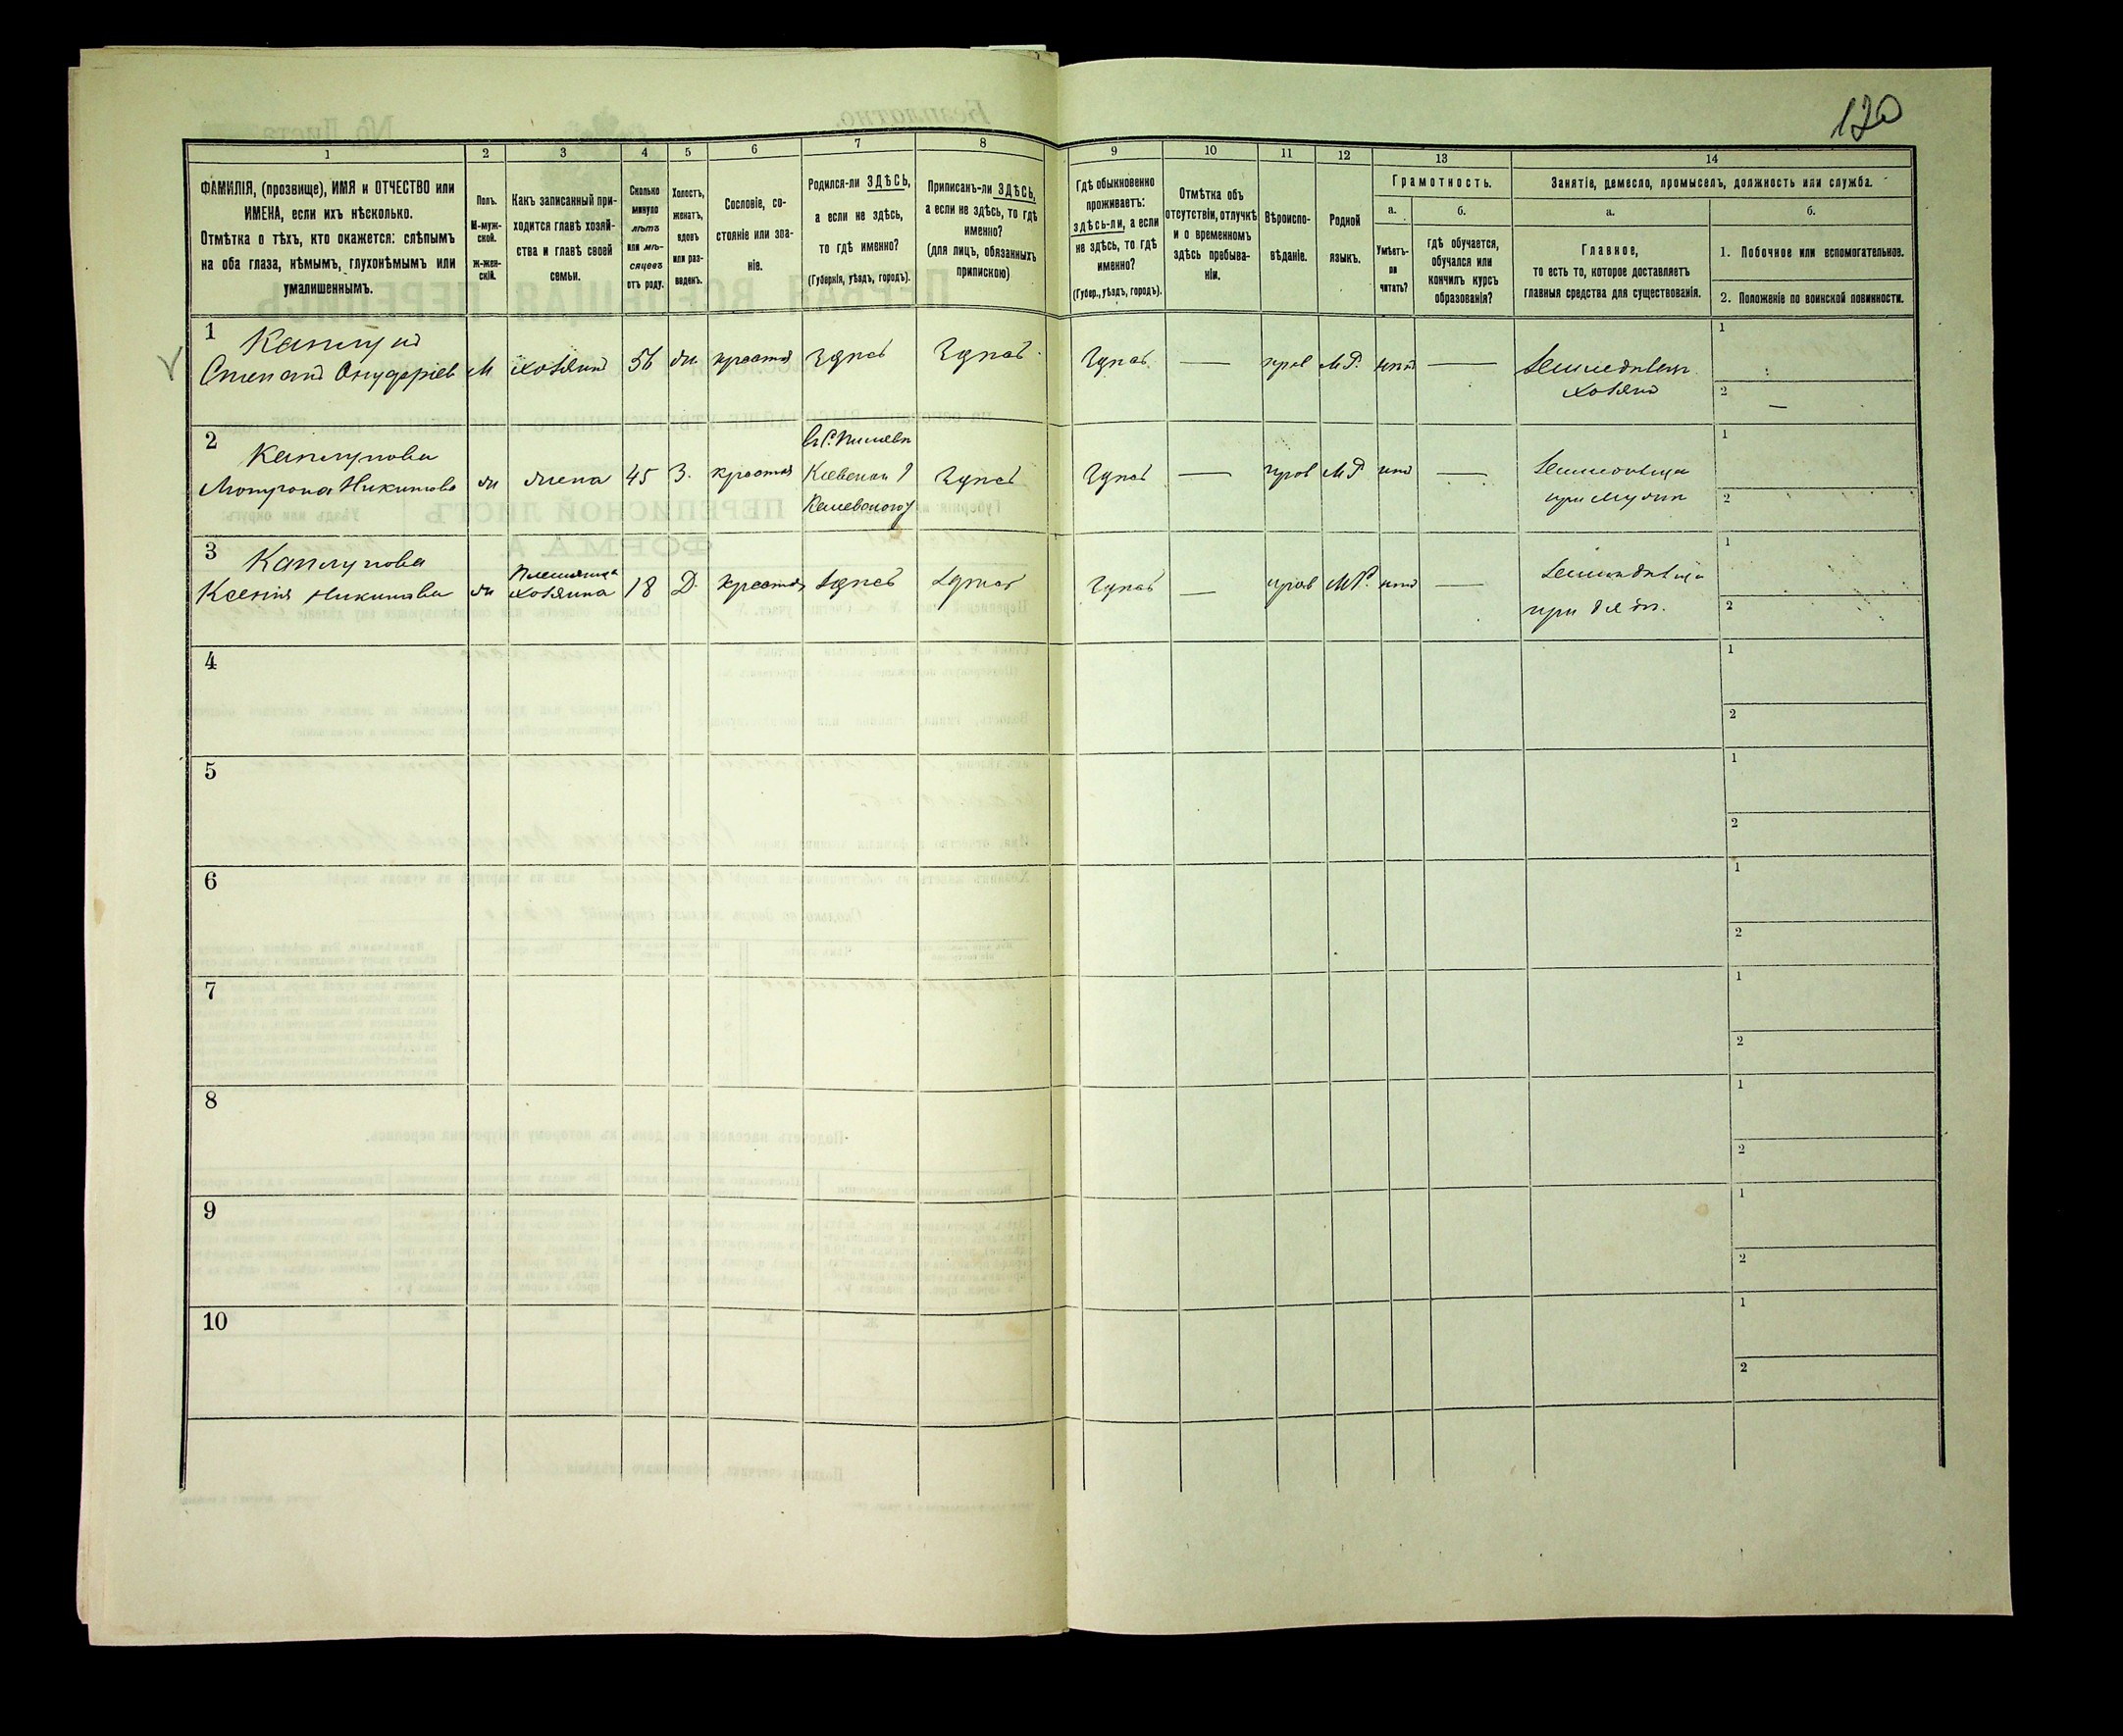 120
1
2
3
4
5
6
7
8
9
10
11
12
13
14
ФАМИЛІЯ, (прозвище), ИМЯ и ОТЧЕСТВО или
ИМЕНА, если ихъ нѣсколько.
Отмѣтка о тѣхъ, кто окажется: слѣпымъ
на оба глаза, нѣмымъ, глухонѣмымъ или
умалишеннымъ.
Полъ.
М-муж-
ской.
ж-жен-
скій.
Какъ записанный при-
ходится главѣ хозяй-
ства и главѣ своей
семьи.
Сколько
минуло
лѣтъ
или мѣ-
сяцевъ
отъ роду.
Холостъ,
женатъ,
вдовъ
или раз-
веденъ.
Сословіе, со-
стояніе или зва-
ніе.
Родился-ли ЗДѢСЬ,
а если не здѣсь,
то гдѣ именно?
(Губернія, уѣздъ, городъ).
Приписанъ-ли ЗДѢСЬ,
а если не здѣсь, то гдѣ
именно?
(для лицъ, обязанныхъ
припискою)
Гдѣ обыкновенно
проживаетъ:
здѣсь-ли, а если
не здѣсь, то гдѣ
именно?
(Губер., уѣздъ, городъ).
Отмѣтка объ
отсутствіи, отлучкѣ
и о временномъ
здѣсь пребыва-
ніи.
Вѣроиспо-
вѣданіе.
Родной
языкъ.
Грамотность.
а.
Умѣетъ-
ли
читать?
б.
гдѣ обучается,
обучался или
кончилъ курсъ
образованія?
Занятіе, ремесло, промыселъ, должность или служба.
а.
Главное,
то есть то, которое доставляетъ
главныя средства для существованія.
б.
1. Побочное или вспомогательное.
2. Положеніе по воинской повинности.
1
Каплунъ
Степанъ Онуфріев
М
хозяинъ
56
жн.
крестян
Здѣсь
Здѣсь
Здѣсь
—
прав
М.Р.
нѣтъ
—
Земледѣлец
хозяинъ
1
2
—
2
Каплунова
Мотрона Никитова
ж
жена
45
З.
крестян
Киевской Г
Здѣсь
Здѣсь
—
прав
М.Р.
нѣт
—
при мужѣ
1
2
3
Каплунова
Ксенія Никитова
ж
Племяница
хозяина
18
Д.
крестян
Здѣсь
Здѣсь
Здѣсь
—
прав
М.Р.
нѣтъ
—
при дядѣ.
1
2
4
1
2
5
1
2
6
1
2
7
1
2
8
1
2
9
1
2
10
1
2